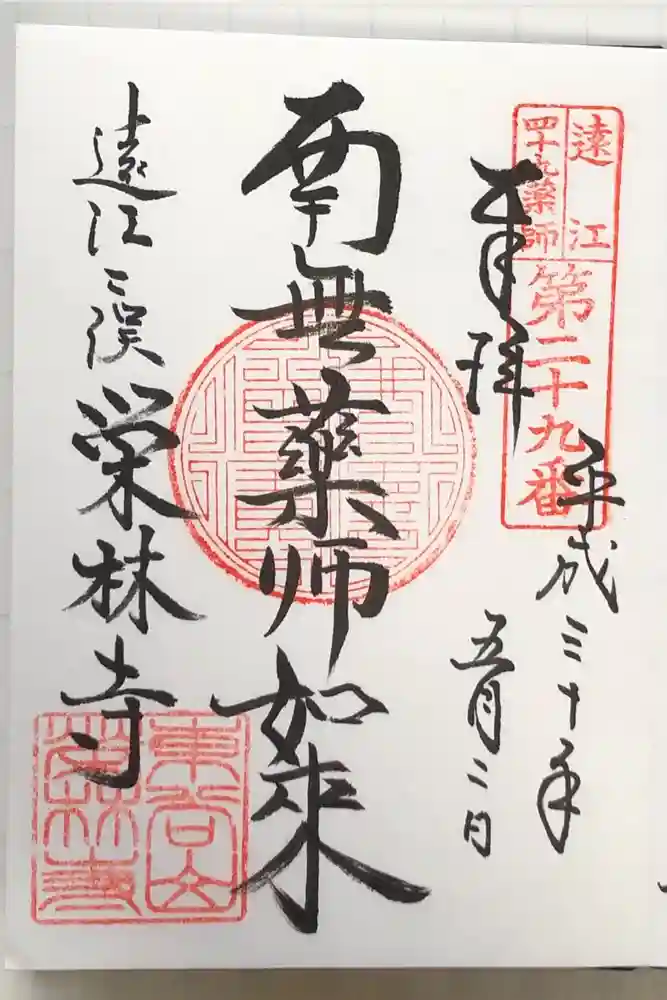 遠江
四十九薬師
第二十九番
奉拝
平成三十年
五月二日
南無薬師如来
遠江二俣
栄林寺
栄林寺